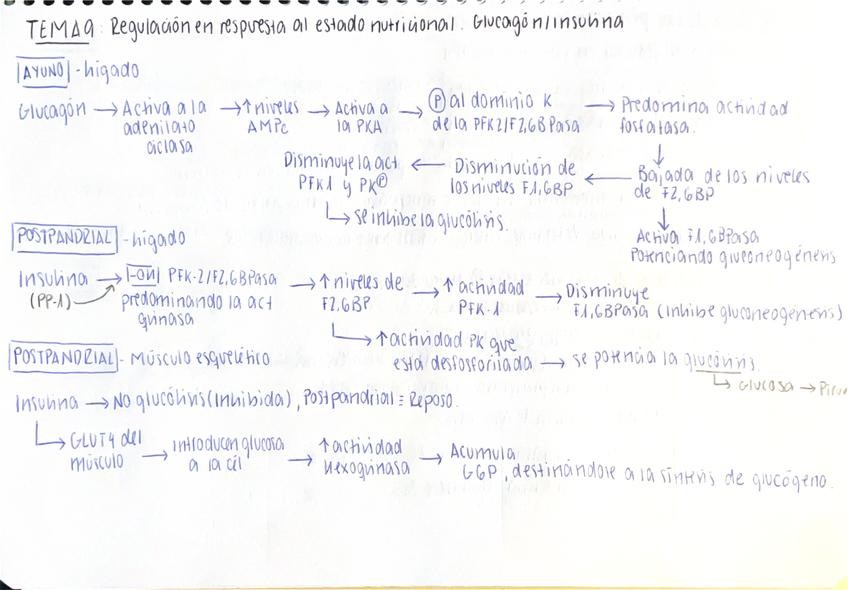 TEMA 9: Regulación en respuesta al estado nutricional. Glucagón/insulina
AYUNO - hígado
Glucagón → Activa a la adenilato ciclasa → ↑ niveles AMPc → Activa a la PKA → Ⓟ al dominio K de la PFK2/F2,6BPasa → Predomina actividad fosfatasa.
↓
Bajada de los niveles de F2,6BP → Disminución de los niveles F1,6BP → Disminuye la act PFK1 y PKⓅ
↳ se inhibe la glucólisis.
↓
Activa F1,6BPasa
Potenciando gluconeogénesis
POSTPANDRIAL - hígado
Insulina → I-OH PFK-2/F2,6BPasa → ↑ niveles de F2,6BP → ↑ actividad PFK-1 → Disminuye F1,6BPasa (Inhibe gluconeogénesis)
(PP-1) predominando la act quinasa
↳ ↑ actividad PK que está desfosforilada → se potencia la glucólisis.
↳ Glucosa →
POSTPANDRIAL - Músculo esquelético
Insulina → No glucólisis (Inhibida), Postpandrial = Reposo.
↳ GLUT4 del músculo → Introducen glucosa a la cél → ↑ actividad Hexoquinasa → Acumula G6P, destinándose a la síntesis de glucógeno.